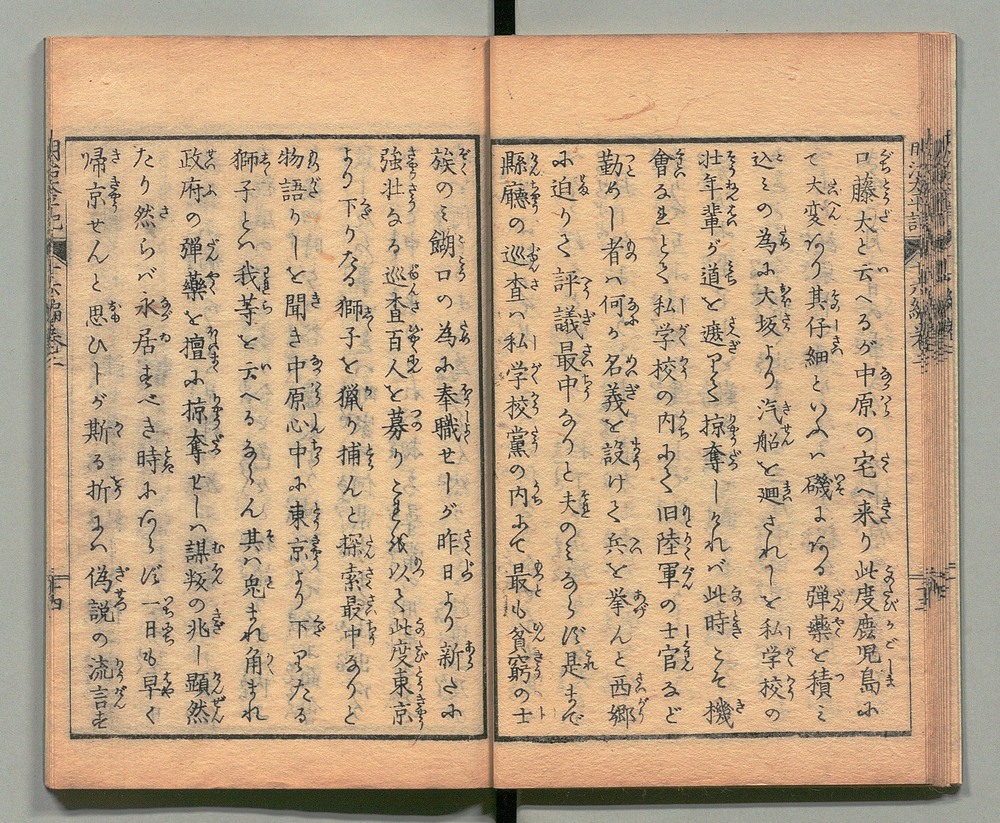 口藤太と云へるが中原の宅へ来り此度鹿児島に
て大変あり其仔細といふハ磯にある弾藥を積ミ
込ミの為に大坂より汽船を廻されしを私学校の
壮年輩が道を遮りて掠奪しけれバ此時こそ機
會なれとて私学校の内にて旧陸軍の士官など
勤めし者ハ何か名義を設けて兵を挙んと西郷
に迫りて評議最中なりと夫のミならず是まで
縣廳の巡査ハ私学校黨の内にて最も貧窮の士
族のミ餬口の為に奉職せしが昨日より新たに
強壮なる巡査百人を募りこれを以て此度東京
より下りたる獅子を獵り捕んと探索最中なりと
物語りしを聞き中原心中に東京より下りたる
獅子とハ我等を云へるならん其ハ兎まれ角まれ
政府の弾藥を擅に掠奪せしハ謀叛の兆し顕然
たり然らバ永居すべき時にあらず一日も早く
帰京せんと思ひしが斯る折にハ偽説の流言も